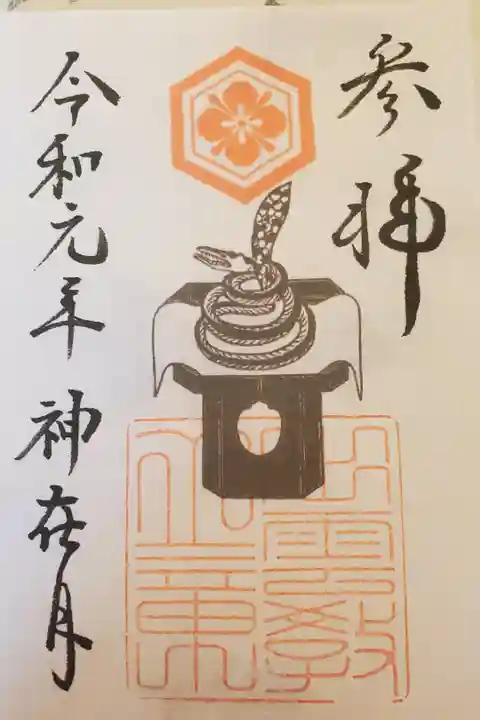 参拝
令和元年 神在月